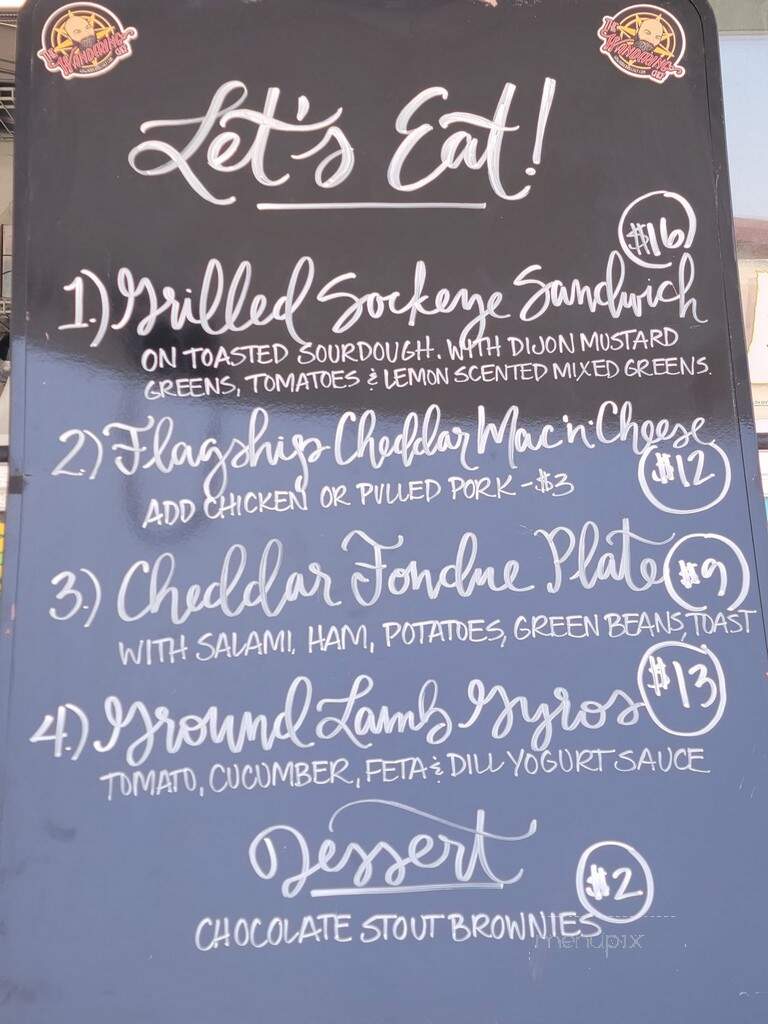 THE WANDERING CHEF
THE WANDERING CHEF
Let's Eat!
$16
1.) Grilled Sockeye Sandwich
ON TOASTED SOURDOUGH. WITH DIJON MUSTARD
GREENS, TOMATOES & LEMON SCENTED MIXED GREENS.
2.) Flagship Cheddar Mac'n'Cheese
$12
ADD CHICKEN OR PULLED PORK - $3
3.) Cheddar Fondue Plate $9
WITH SALAMI, HAM, POTATOES, GREEN BEANS, TOAST
4.) Ground Lamb Gyros $13
TOMATO, CUCUMBER, FETA & DILL YOGURT SAUCE
Dessert
$2
CHOCOLATE STOUT BROWNIES
menupix